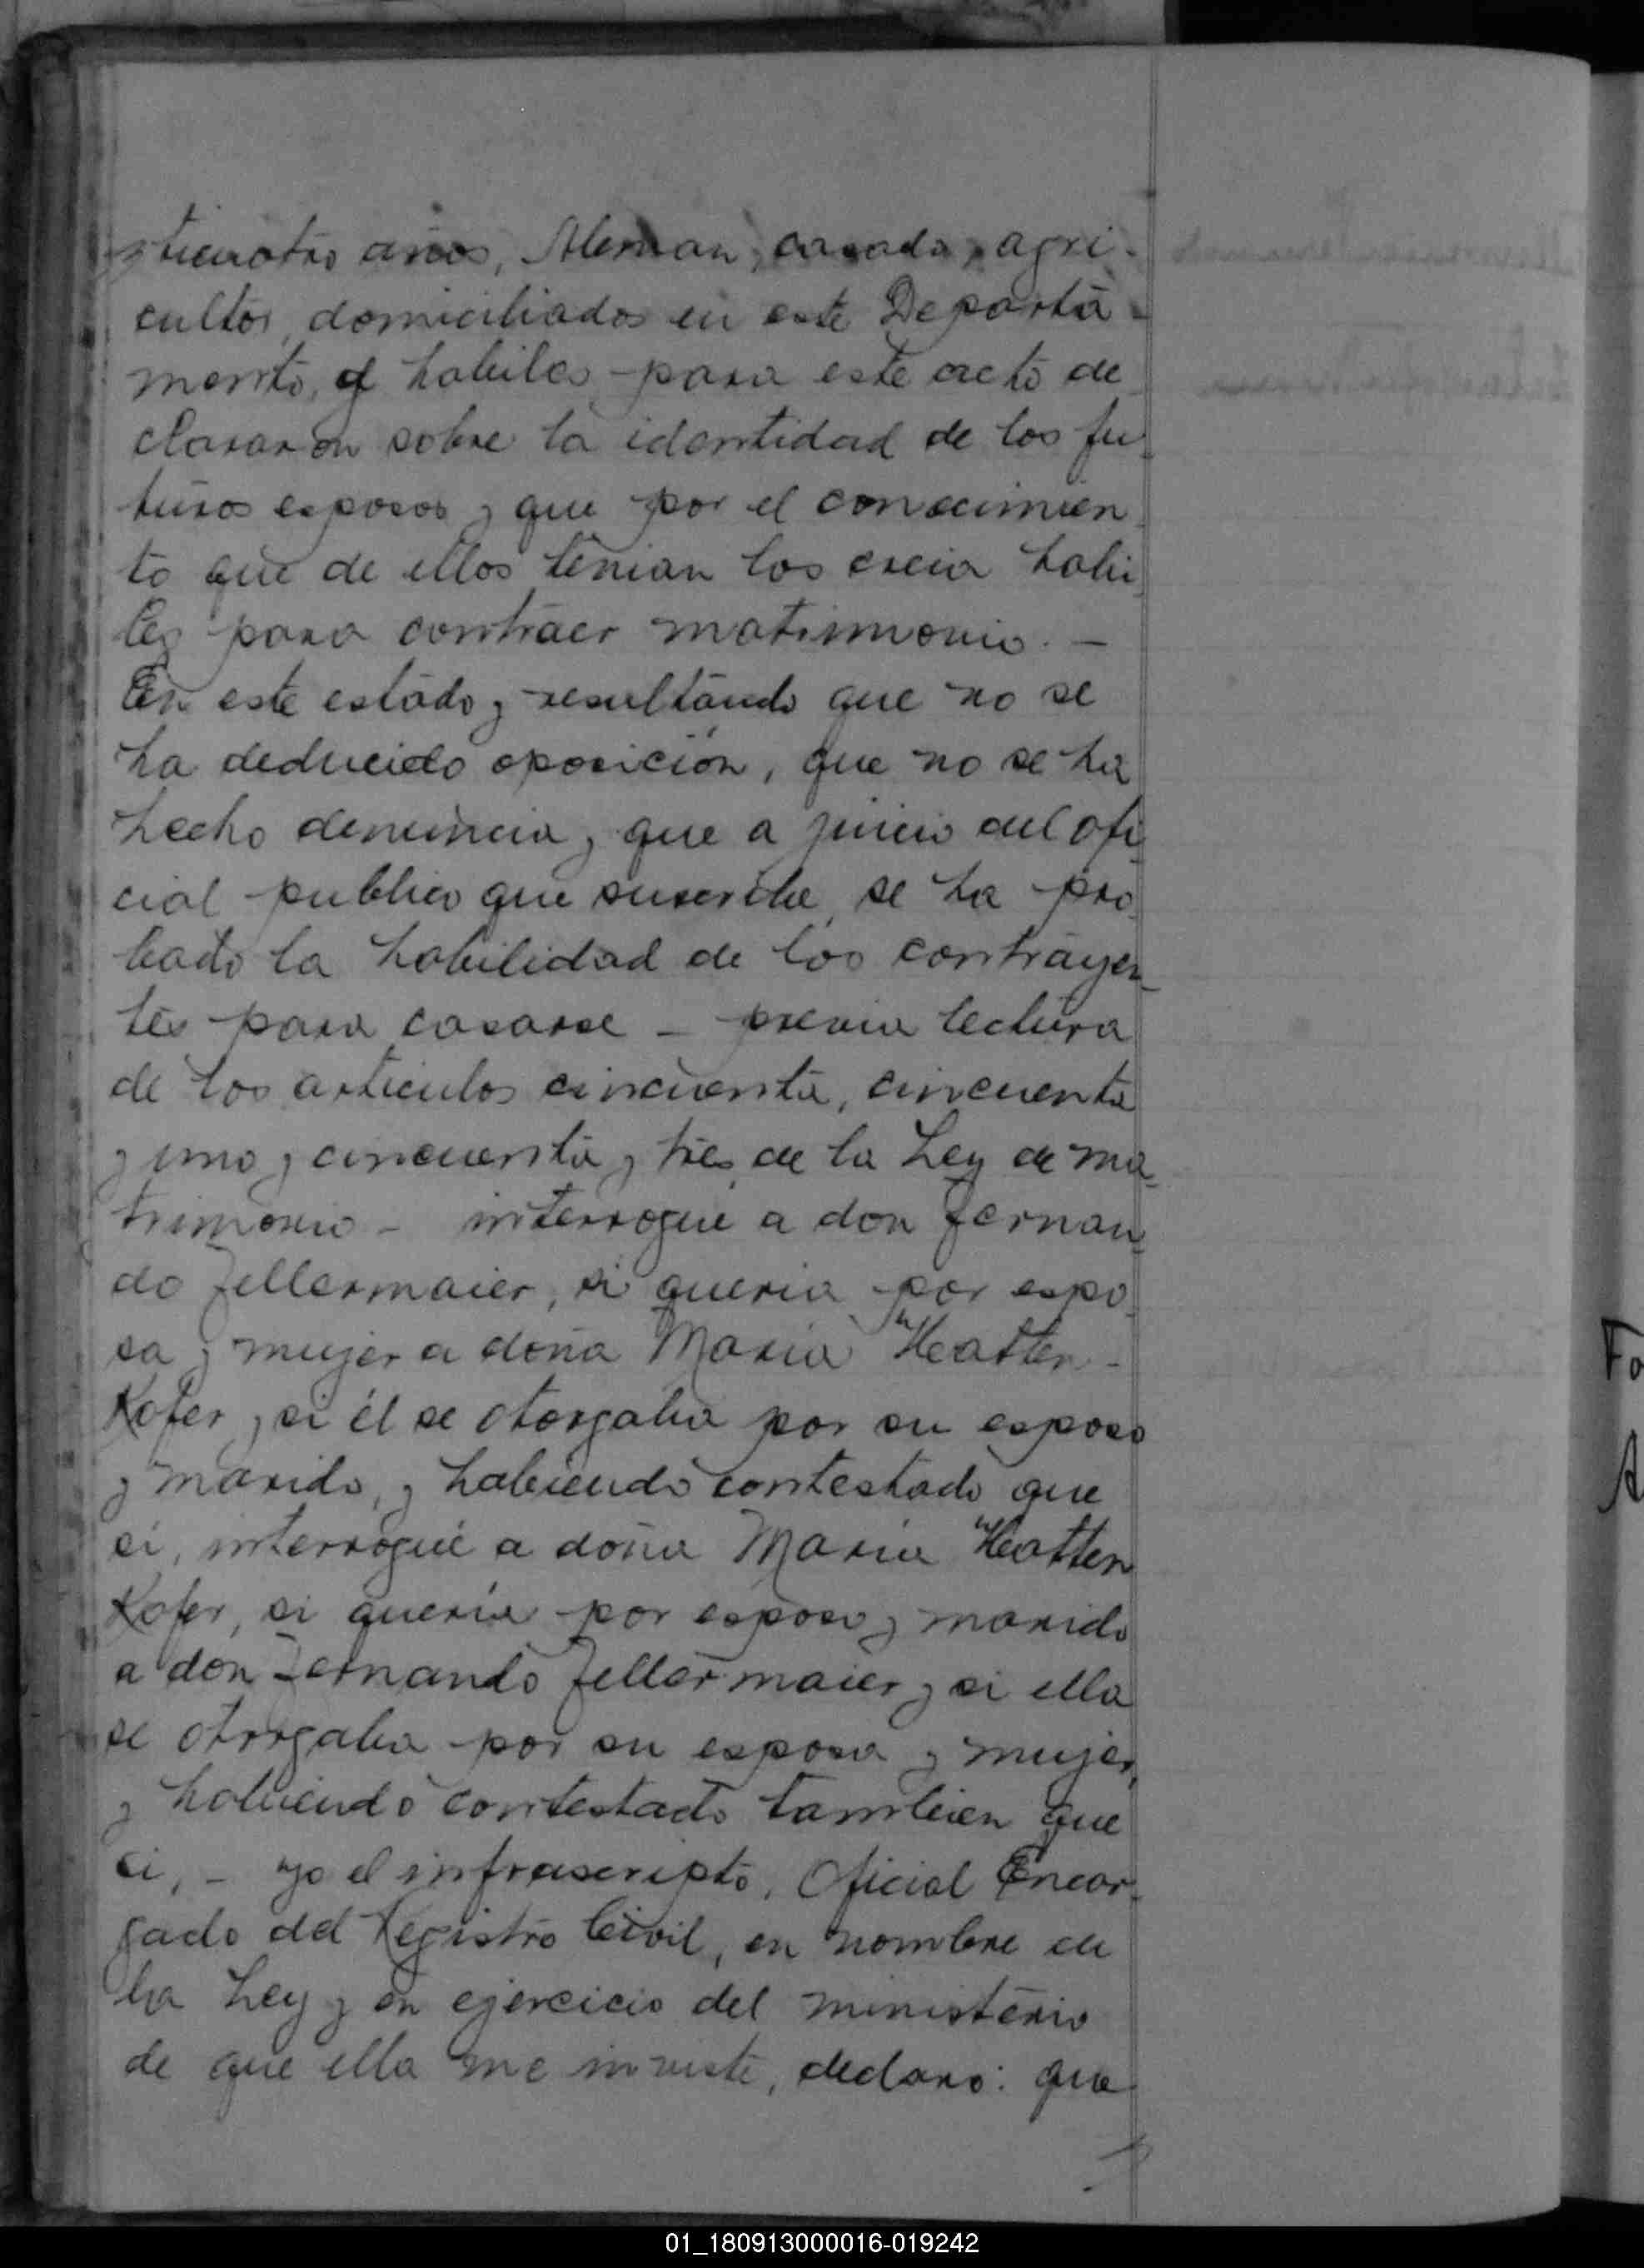 ticuatro años, Aleman, casado, agri-
cultor, domiciliados en este Departa-
mento, y habiles para este acto de
clararon sobre la identidad de los fu-
turos esposos y que por el conocimien
to que de ellos tenian los creia habi
les para contraer matrimonio. —
En este estado y resultando que no se
ha deducido oposición, que no se ha
hecho denuncia y que a juicio del ofi
cial publico que suscribe, se ha pro
bado la habilidad de los contrayen-
tes para casarse — previa lectura
de los articulos cincuenta, cincuenta
y uno y cincuenta y tres de la Ley de ma-
trimonio — interrogué a don Fernan-
do Zellermaier, si queria por espo
sa y mujer a doña Maria Hatten-
Kofer y si él se otorgaba por su esposo
y marido, y habiendo contestado que
si, interrogué a doña Maria Hatten
Kofer, si queria por esposo y marido
a don Fernando Zellermaier y si ella
se otorgaba por su esposa y mujer,
y habiendo contestado tambien que
si, — yo el infrascripto, Oficial Encar-
gado del Registro Civil, en nombre de
la Ley y en ejercicio del ministerio
de que ella me inviste, declaro: que
Fo
A
01_180913000016-019242